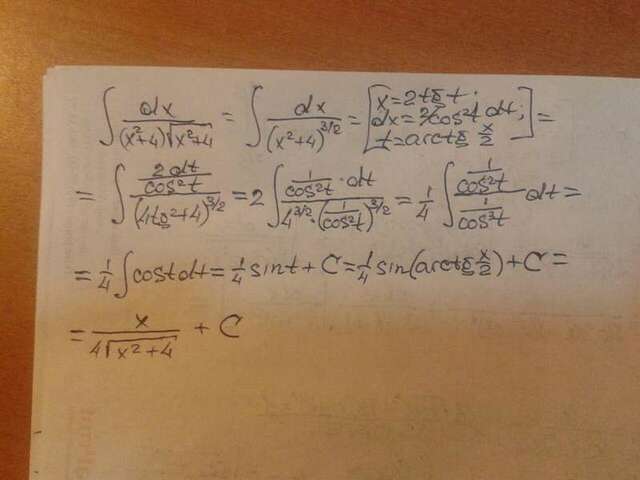 ∫ dx/((x²+4)√(x²+4)) = ∫ dx/(x²+4)^(3/2) = [x=2tg t; dx=2/cos²t dt; t=arctg x/2] =
= ∫ (2dt/cos²t)/(4tg²+4)^(3/2) = 2∫ (1/cos²t · dt)/(4^(3/2)·(1/cos²t)^(3/2)) = 1/4 ∫ (1/cos²t)/(1/cos³t) dt =
= 1/4 ∫ cos t dt = 1/4 sin t + C = 1/4 sin(arctg x/2) + C =
= x/(4√(x²+4)) + C